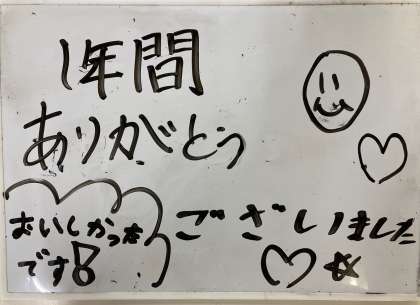 1年間
ありがとう
ございました
おいしかった
です!